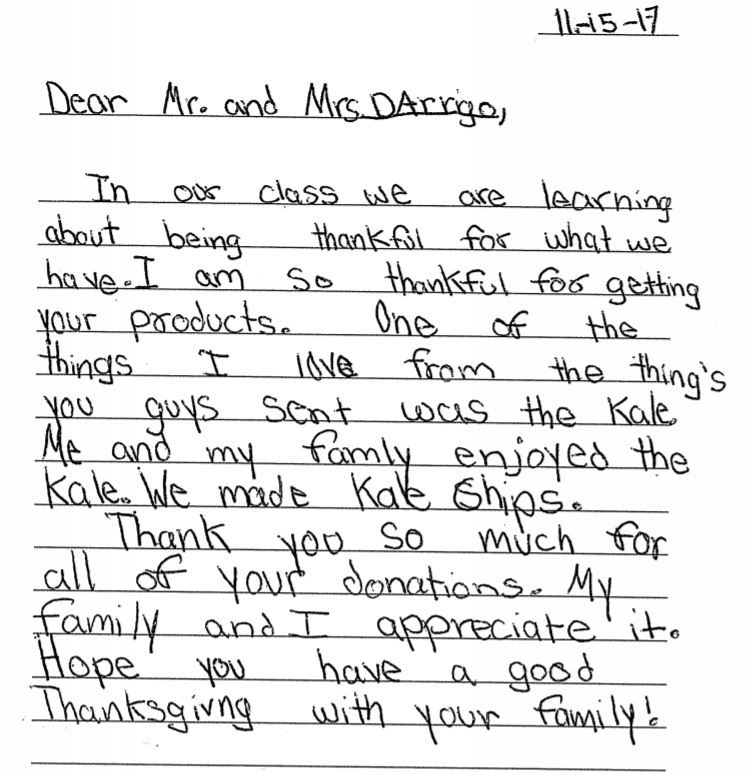 11-15-17
Dear Mr. and Mrs. DArrigo,
In our class we are learning
about being thankful for what we
have. I am so thankful for getting
your products. One of the
things I love from the thing's
you guys sent was the Kale
Me and my famly enjoyed the
Kale. We made Kale Chips.
Thank you so much for
all of your donations. My
family and I appreciate it.
Hope you have a good
Thanksgivng with your family!